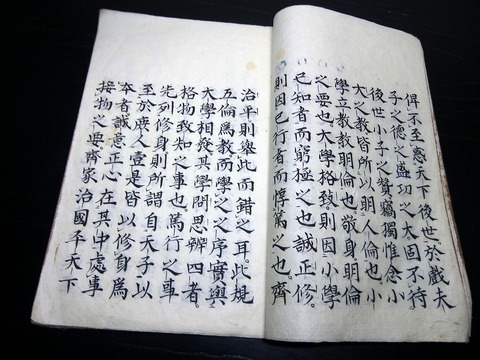 俾不至惑天下後世於戲夫
子之德之盛功之大固不待
後世小子之贊竊獨惟念小
大之教皆所以明人倫也小
學立教教明倫也敬身明倫
之要也大學格致則因小學
已知者而窮極之也誠正修
則因已行者而惇篤之也。齊
治平則舉此而錯之耳。此規
五倫爲教而學之之序實與
大學相發其學問思辨四者。
格物致知之事也。篤行之事
先列修身則所謂自天子以
至於庶人壹是皆以修身爲
本者誠意正心在其中處事
接物之要齊家治國平天下